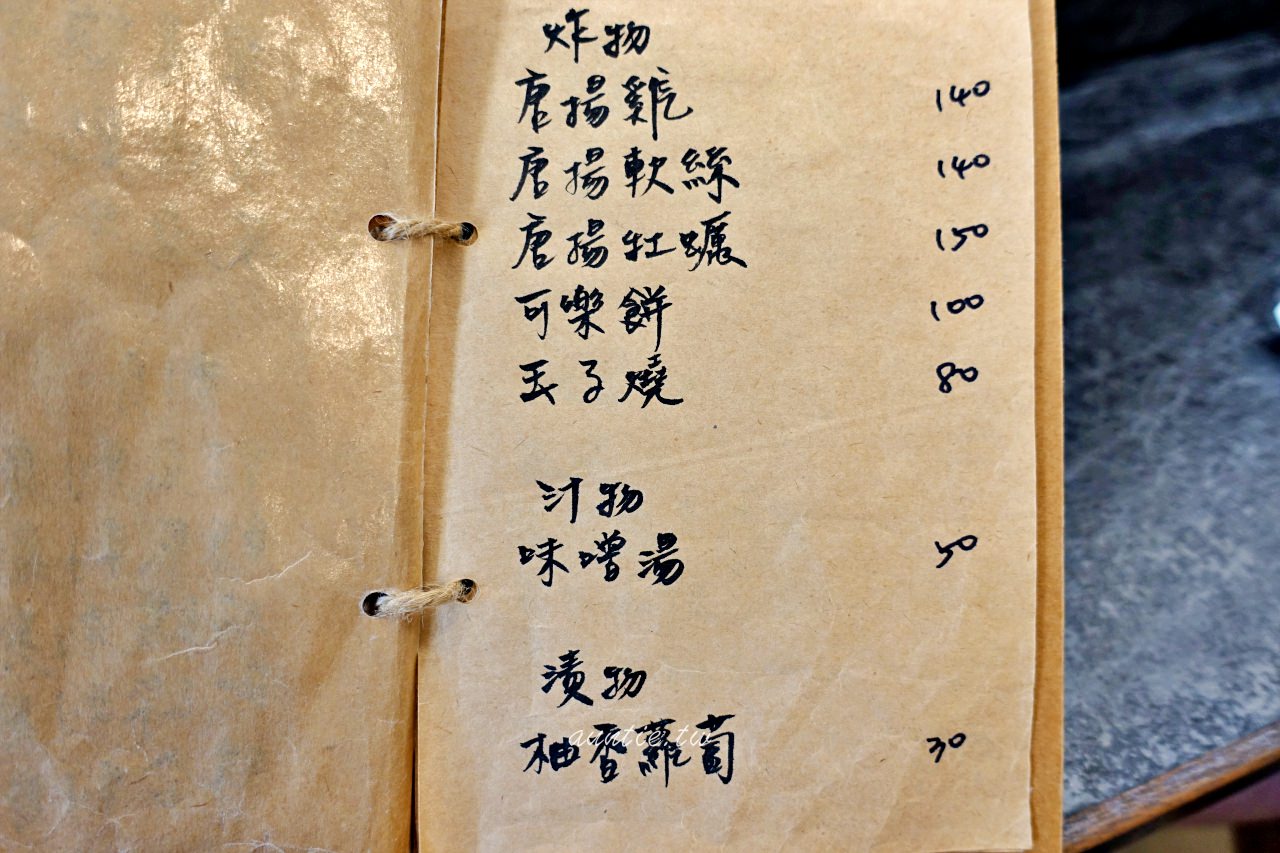 炸物
唐揚雞 140
唐揚軟絲 140
唐揚牡蠣 150
可樂餅 100
玉子燒 80
汁物
味噌湯 50
漬物
柚香蘿蔔 30
auntie.tw